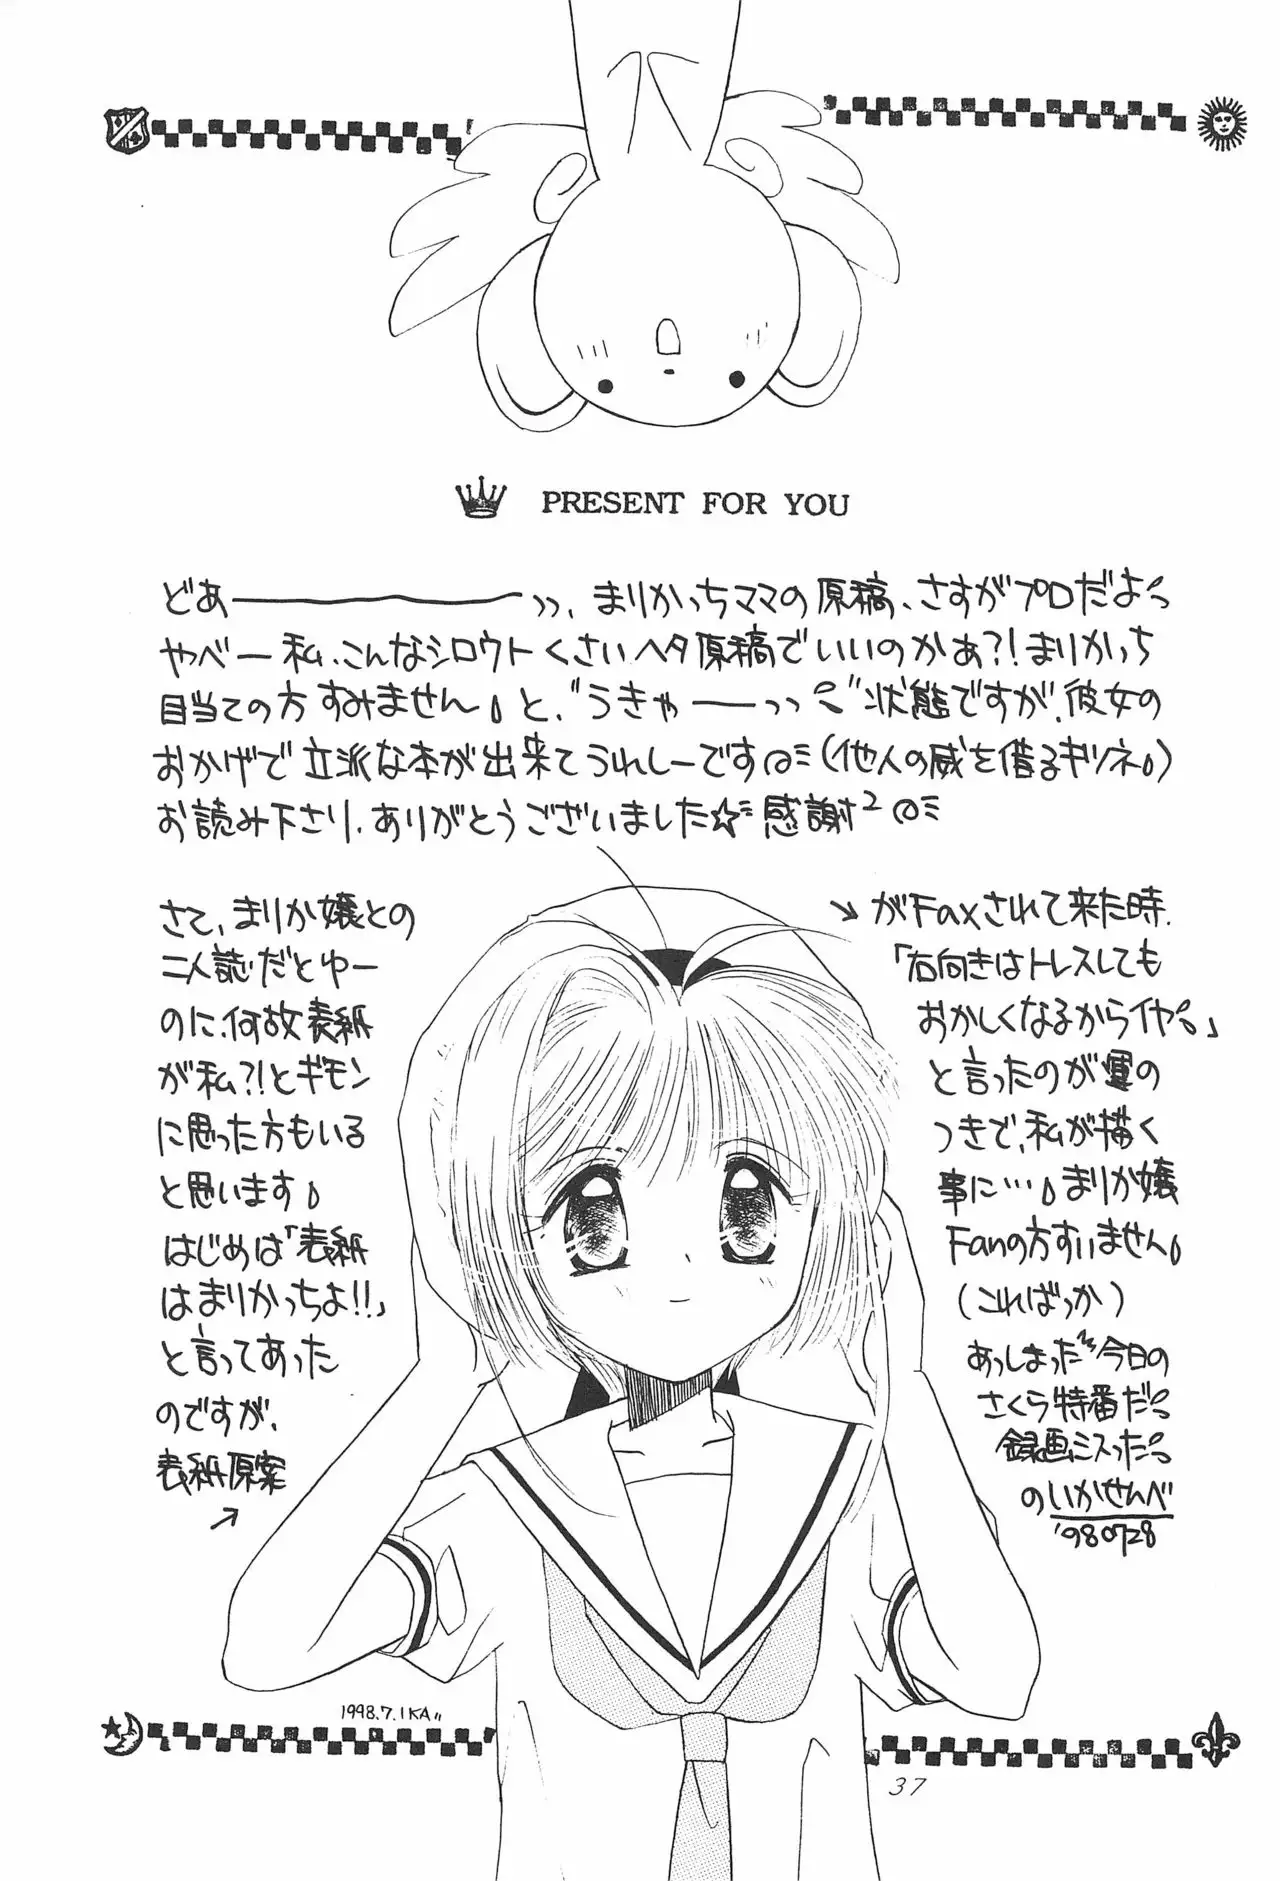 PRESENT FOR YOU
どあーーーッッ、まりかっちママの原稿、さすがプロだよ
やべー私、こんなシロウトくさいヘタ原稿でいいのかぁ?!まりかっち
目当ての方すみません。と、"うきゃーーッッ"状態ですが、彼女の
おかげで立派な本が出来てうれしーです@ミ(他人の威を借るキツネ。)
お読み下さり、ありがとうございました☆ミ感謝²@ミ
さて、まりか嬢との
二人誌だとゆー
のに、何故表紙
が私?!とギモン
に思った方もいる
と思います。
はじめは「表紙
はまりかっちよ!!」
と言ってあった
のですが、
表紙原案
↗
↘がFaxされて来た時、
「右向きはトレスしても
おかしくなるからイヤ。」
と言ったのが運の
つきで、私が描く
事に…。まりか嬢
Fanの方すいません。
(こればっか)
あっしまった今日の
さくら特番だ
録画ミスった
のいかせんべ
'980728
1998.7.IKA
37